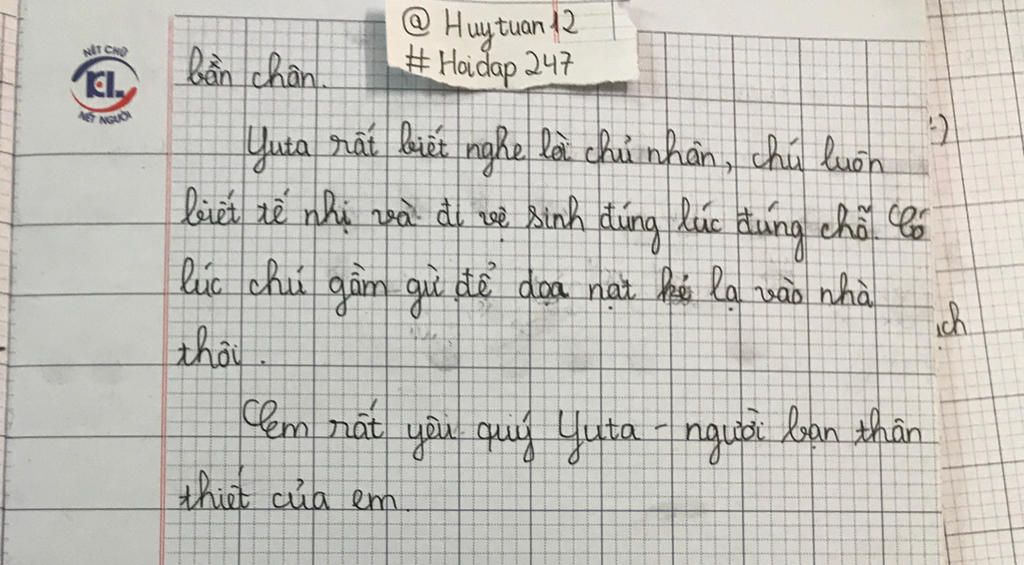 @ Huytuan12
# Hoidap 247
NÉT CHỮ
KL
NẾT NGƯỜI
bẩn chân.
Yuta rất biết nghe lời chủ nhân, chú luôn
biết tế nhị và đi vệ sinh đúng lúc đúng chỗ. Có
lúc chú gầm gừ để dọa nạt kẻ lạ vào nhà
thôi.
Em rất yêu quý Yuta - người bạn thân
thiết của em.
:)
ch